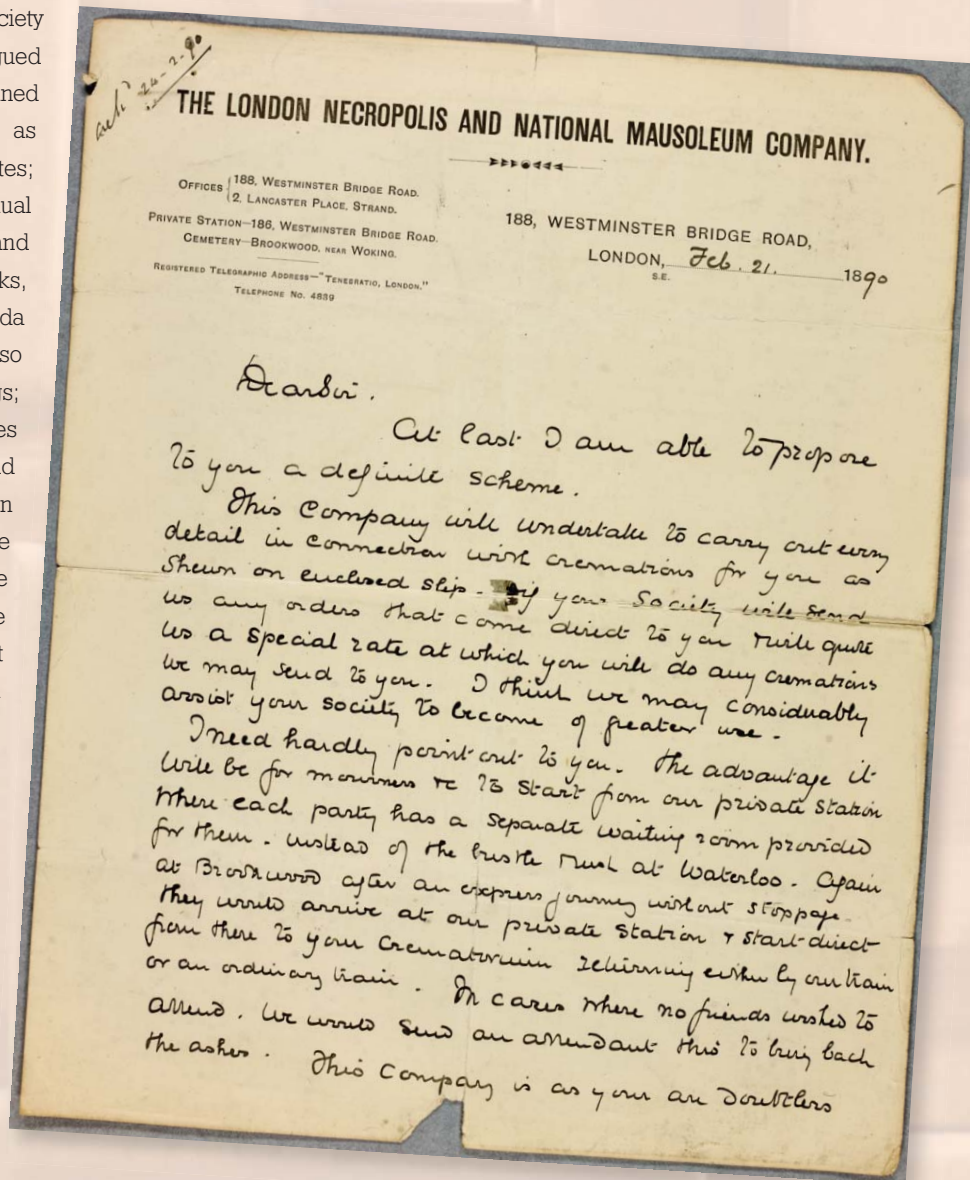 ciety
gued
ned
as
tes;
ual
and
ks,
da
so
gs;
es
d
n
e
e
e
t
24-2-90
THE LONDON NECROPOLIS AND NATIONAL MAUSOLEUM COMPANY.
OFFICES { 188, WESTMINSTER BRIDGE ROAD.
2, LANCASTER PLACE, STRAND.
PRIVATE STATION—186, WESTMINSTER BRIDGE ROAD.
CEMETERY—BROOKWOOD, NEAR WOKING.
REGISTERED TELEGRAPHIC ADDRESS—"TENEBRATIO, LONDON."
TELEPHONE No. 4839
188, WESTMINSTER BRIDGE ROAD,
LONDON, Feb. 21. 1890
S.E.
Dear Sir.
At last I am able to propose
to you a definite scheme.
This Company will undertake to carry out every
detail in connection with cremations for you as
shewn on enclosed slip - if your Society will send
us any orders that come direct to you & will quote
us a special rate at which you will do any cremations
we may send to you. I think we may considerably
assist your society to become of greater use.
I need hardly point out to you. the advantage it
will be for mourners &c to start from our private station
where each party has a separate waiting room provided
for them. instead of the bustle & rush at Waterloo. Again
at Brookwood after an express journey without stoppage
they would arrive at our private station & start direct
from there to your Crematorium returning either by our train
or an ordinary train. In cases where no friends wished to
attend. we would send an attendant this to bring back
the ashes. This Company is as your are doubtless